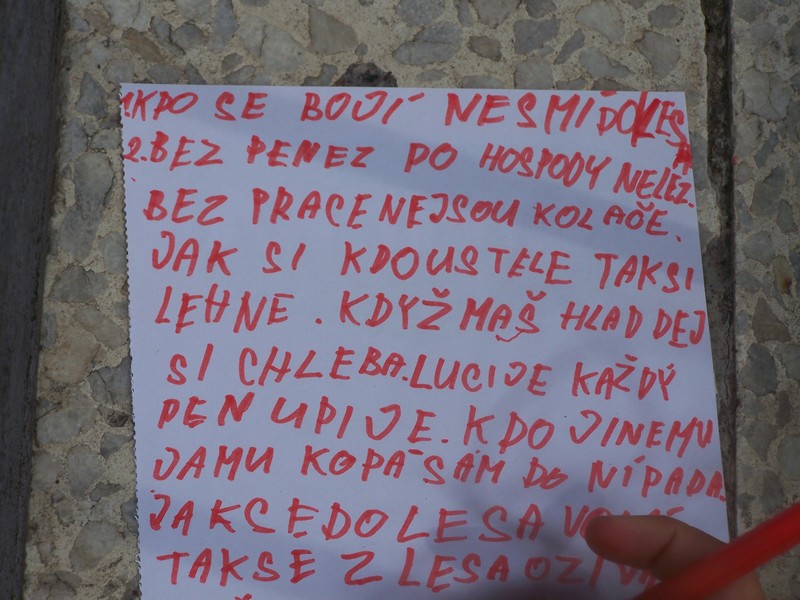 1.KDO SE BOJÍ NESMÍ DO LES
A
2.BEZ PENEZ DO HOSPODY NELEZ.
BEZ PRACE NEJSOU KOLAČE.
JAK SI KDO USTELE TAK SI
LEHNE. KDYŽ MAŠ HLAD DEJ
SI CHLEBA. LUCIJE KAŽDÝ
DEN UPIJE. KDO JINEMU
JAMU KOPÁ SAM DO NÍ PADA.
JAK CE DO LESA
TAK SE Z LESA